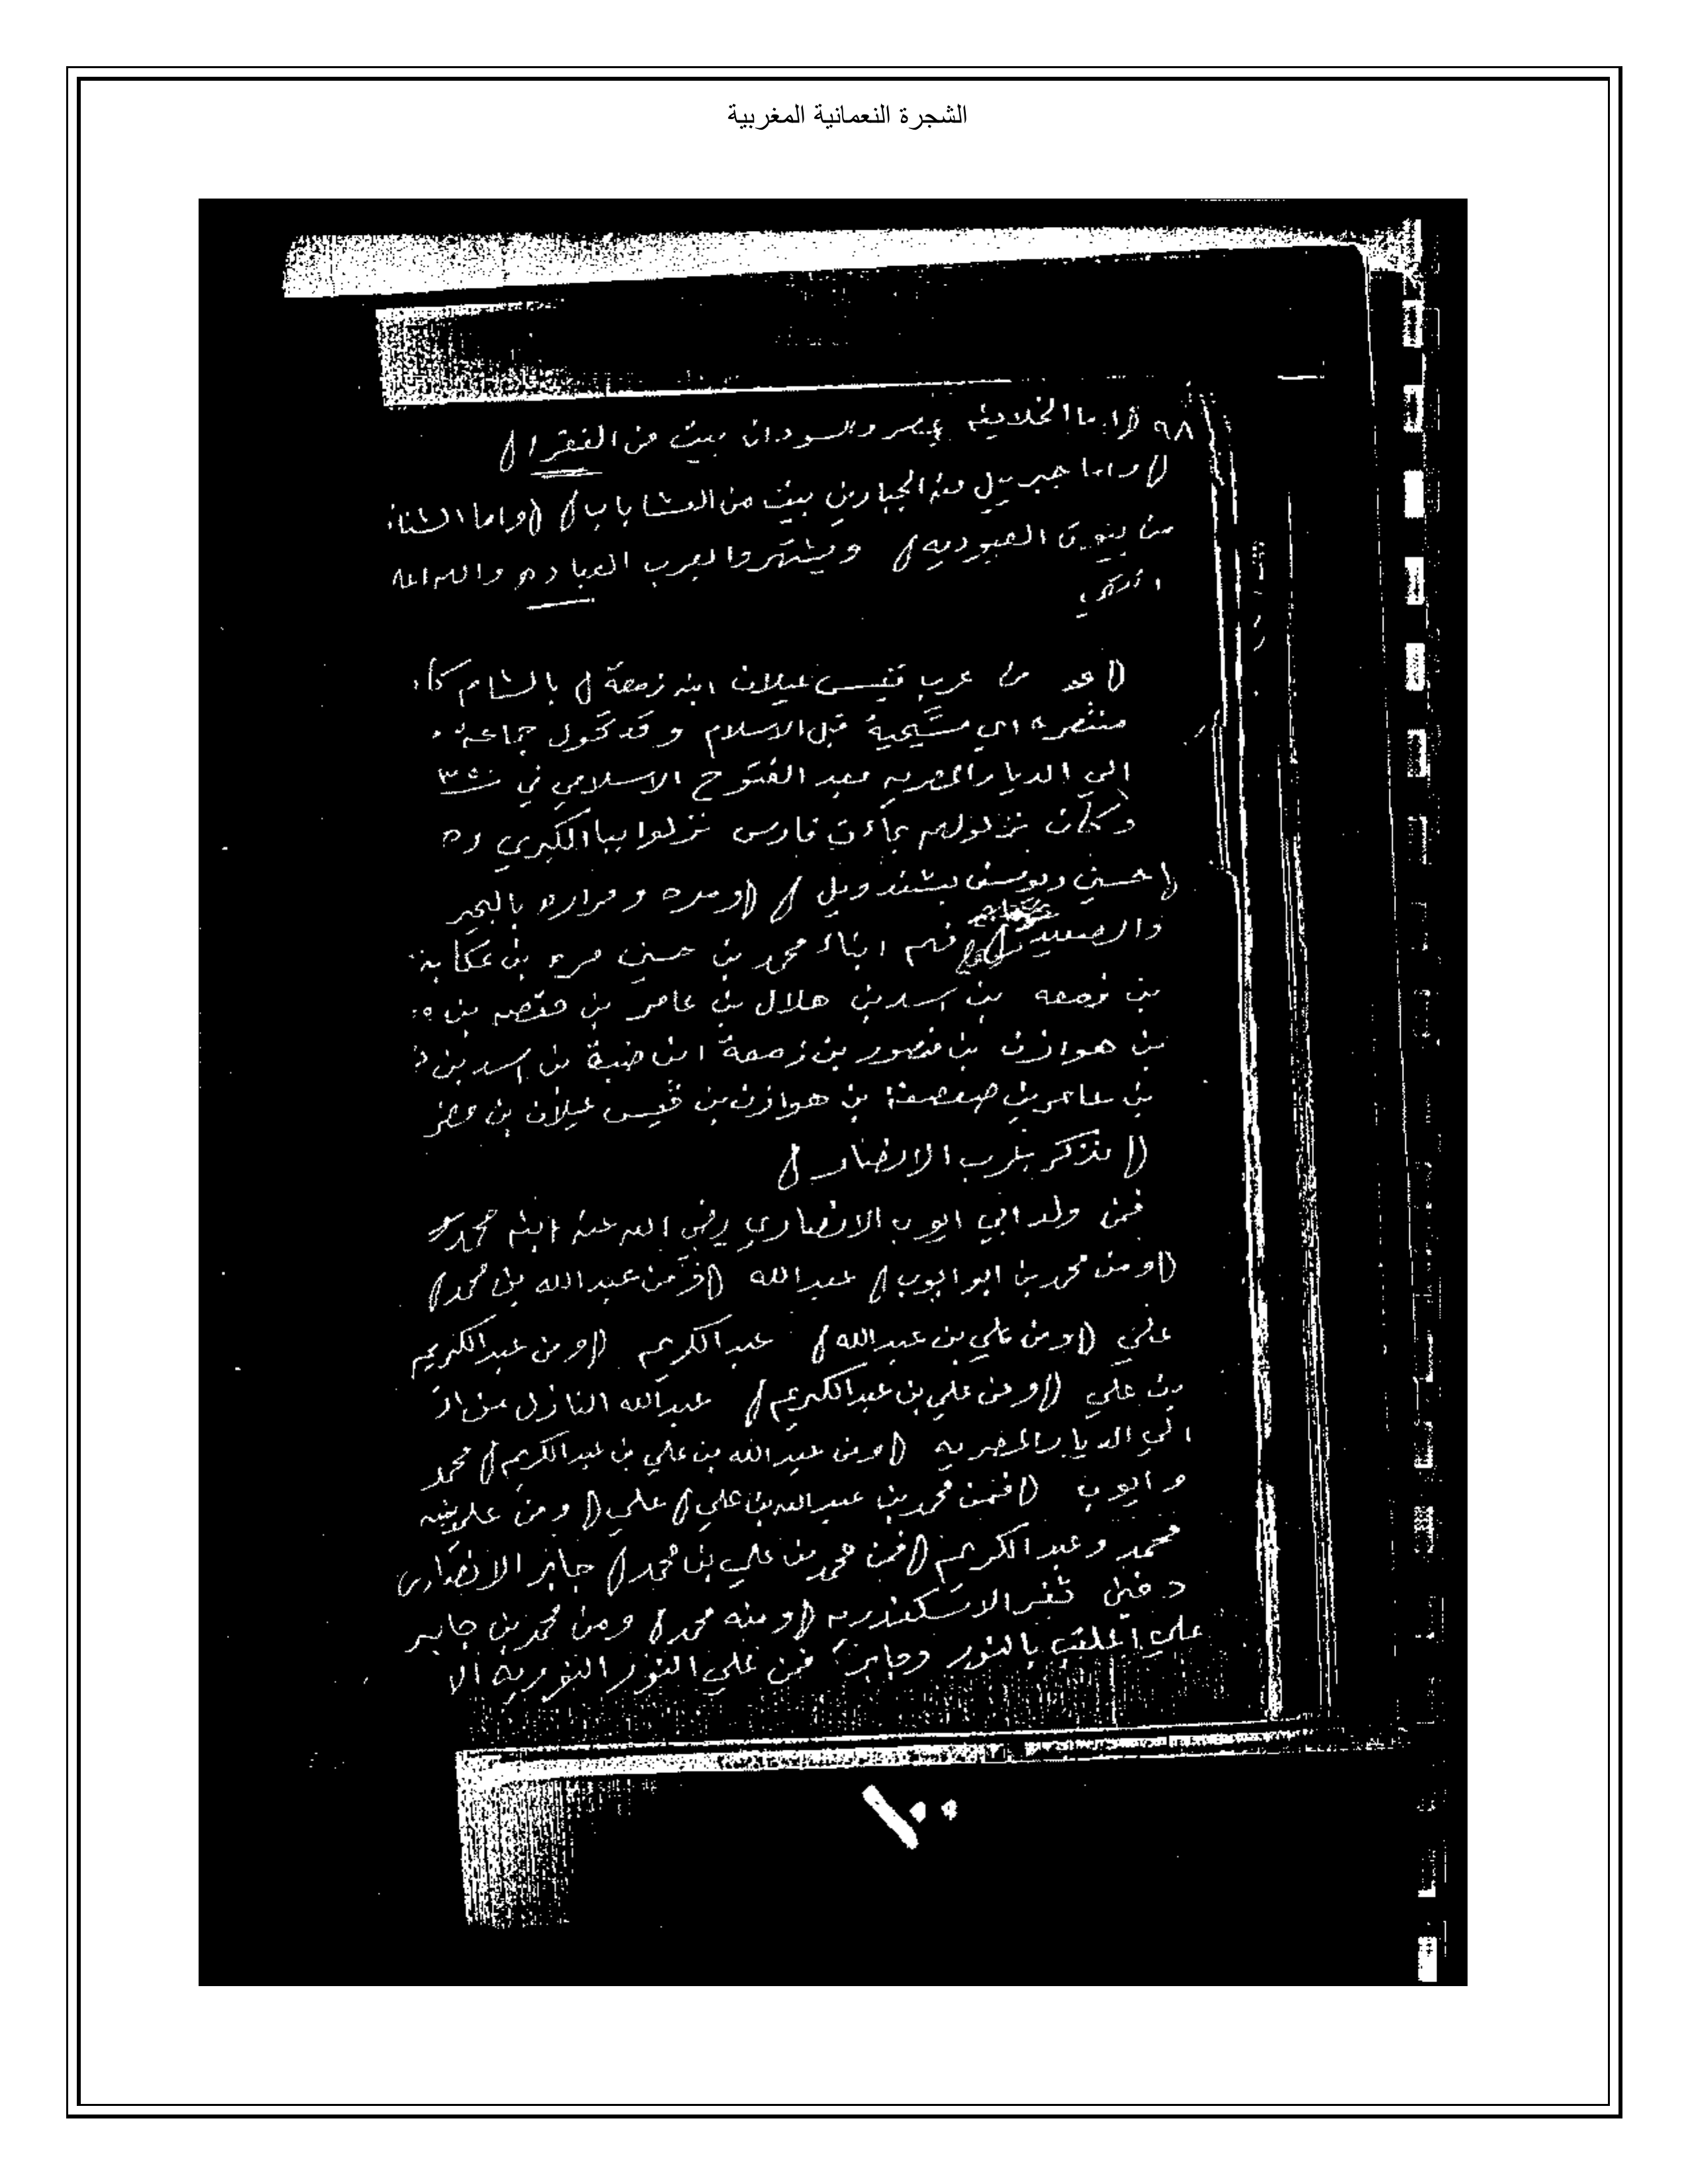 الشجرة النعمانية المغربية
٩٨ واما الخلايفه بمصر والسودان بيت من الفقرا
واما جبريل منه الجبارين بيت من العشاباب واما الشنا
من العبوديه ويشتهروا بعرب العباده والله اعلم
من عرب قيس عيلان ابنه زمعة بالشام
متنصره اي مسيحية قبل الاسلام وقد تحول جماعة
الي الديار المصريه بعد الفتوح الاسلامي في
وكان نزولهم فارس نزلوا ببا الكبري
حسين ويونس بشندويل ومره وفراره بالبحير
والصعيد فهم ابناء محمد بن حسين مره بن عكابة
بن زمعه بن اسد بن هلال بن عامر بن بن
بن هوازن بن منصور بن زمعة ابن ضبة بن اسد بن
بن عامر بن صعصعة بن هوازن بن قيس عيلان بن مضر
نذكر بعرب الانصار
فمن ولد ابي ايوب الانصاري رضي الله عنه ابنه محمد
ومن محمد بن ابو ايوب عبدالله فمن عبدالله بن محمد
علي ومن علي بن عبدالله عبدالكريم ومن عبدالكريم
بن علي ومن علي بن عبدالكريم عبدالله النازل من
الي الديار المصريه ومن عبدالله بن علي بن عبدالكريم محمد
وايوب فمن محمد بن عبدالله بن علي علي ومن علي
محمد وعبد الكريم فمن محمد بن علي بن محمد جابر الانصاري
دفين ثغر الاسكندريه ومنه محمد ومن محمد بن جابر
علي الملقب بالنور وجابر فمن علي النور النوريه الا
١٠٠